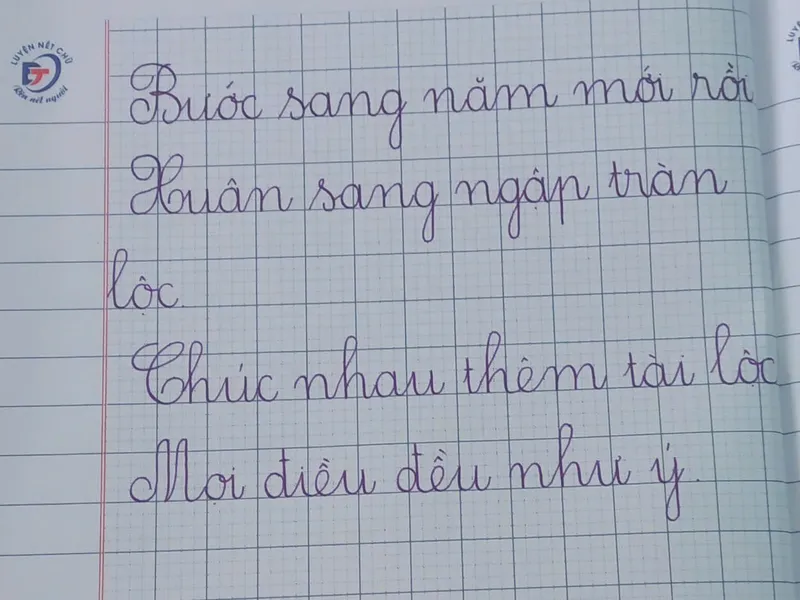 LUYỆN NÉT CHỮ
ĐT
Rèn nét người
Bước sang năm mới rồi
Xuân sang ngập tràn
lộc.
Chúc nhau thêm tài lộc
Mọi điều đều như ý.